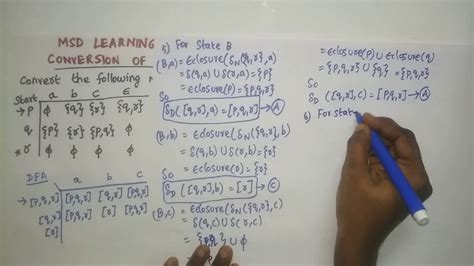 MSD LEARNING
CONVERSION OF
Convert the following
Start a b c ϵ
→P ϕ {q} {r} {q,r}
q {P} {r} {P,q} ϕ
*r ϕ ϕ ϕ ϕ
DFA a b c
→[P,q,r] [P,q,r] [q,r] [P,q,r]
[q,r] [P,q,r] [r] [P,q,r]
[r] ϕ ϕ ϕ
5) For State B
(B,a) = ϵclosure(δN({q,r},a)
= δ(q,a) ∪ δ(r,a) = {P}
= ϵclosure(P) = {P,q,r}
So
δD([q,r],a) = [P,q,r] → A
(B,b) = ϵclosure(δN({q,r},b)
= δ(q,b) ∪ δ(r,b) = {r}
= ϵclosure(r) = {r}
So
δD([q,r],b) = [r] → C
(B,c) = ϵclosure(δN({q,r},c)
= δ(q,c) ∪ δ(r,c)
= {P,q} ∪ ϕ
= ϵclosure(P) ∪ ϵclosure(q)
= {P,q,r} ∪ {q} = {P,q,r}
So
δD([q,r],c) = [P,q,r] → A
6) For State